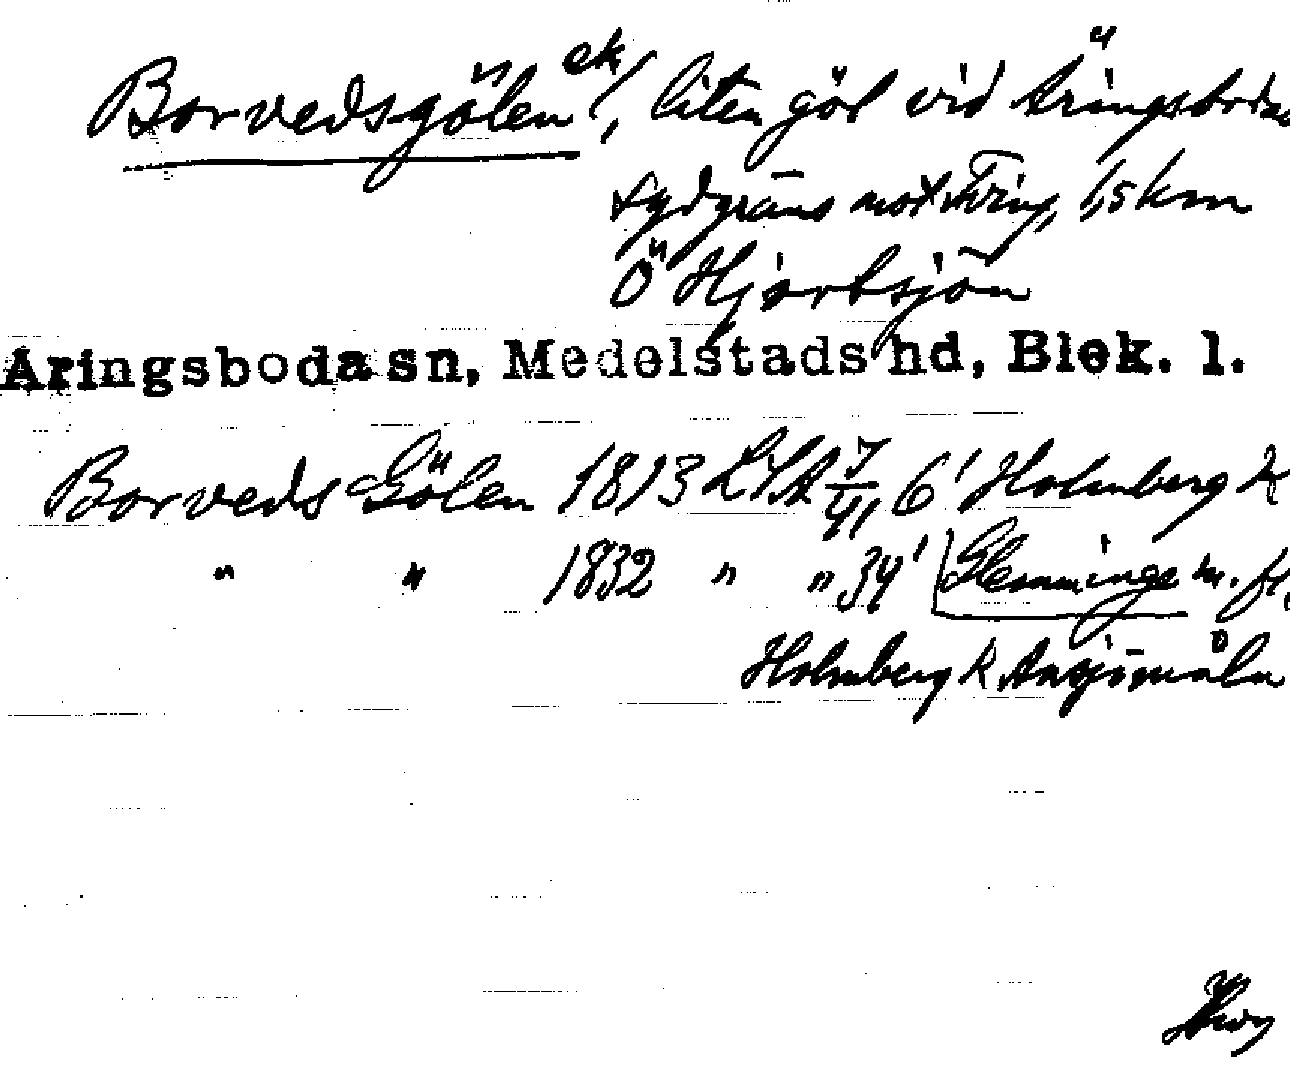 Borvedsgölen ek/, liten göl vid Äringsboda
sydgräns mot Tving, 1,5 km
Ö Hjortsjön
Äringsboda sn, Medelstads hd, Blek. l.
Borveds Gölen 1813 LSA 7/41, 6' Holmberg k
" " 1832 " " 34' Hemmingе m. fl.
Holmberg k Ansjömåla